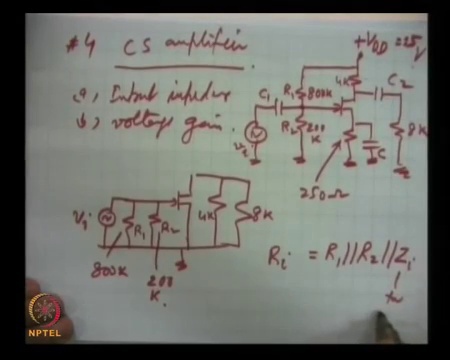 #4 CS amplifier.
a, Input impedance
b, voltage gain.
+VDD = 25V
4K
C2
R1 800K
C1
R2 200K
8K
C
vi
250Ω
Vi
R1
R2
4K
8K
800K
200K.
Ri = R1||R2||Zi
NPTEL